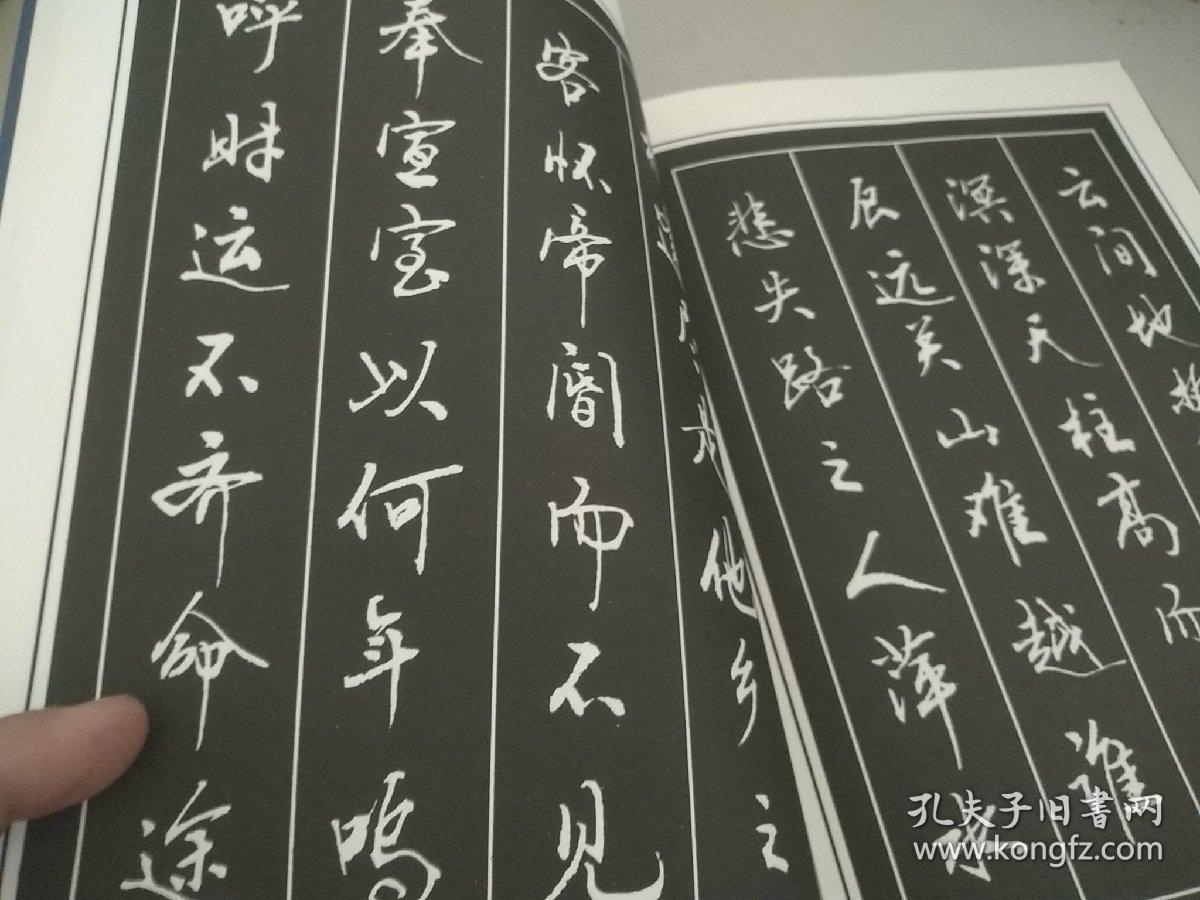 云间地
溟深天柱高而
辰远关山难越谁
悲失路之人萍水
他乡之
客怀帝阍而不见
奉宣室以何年呜
呼时运不齐命途
孔夫子旧書网
www.kongfz.com